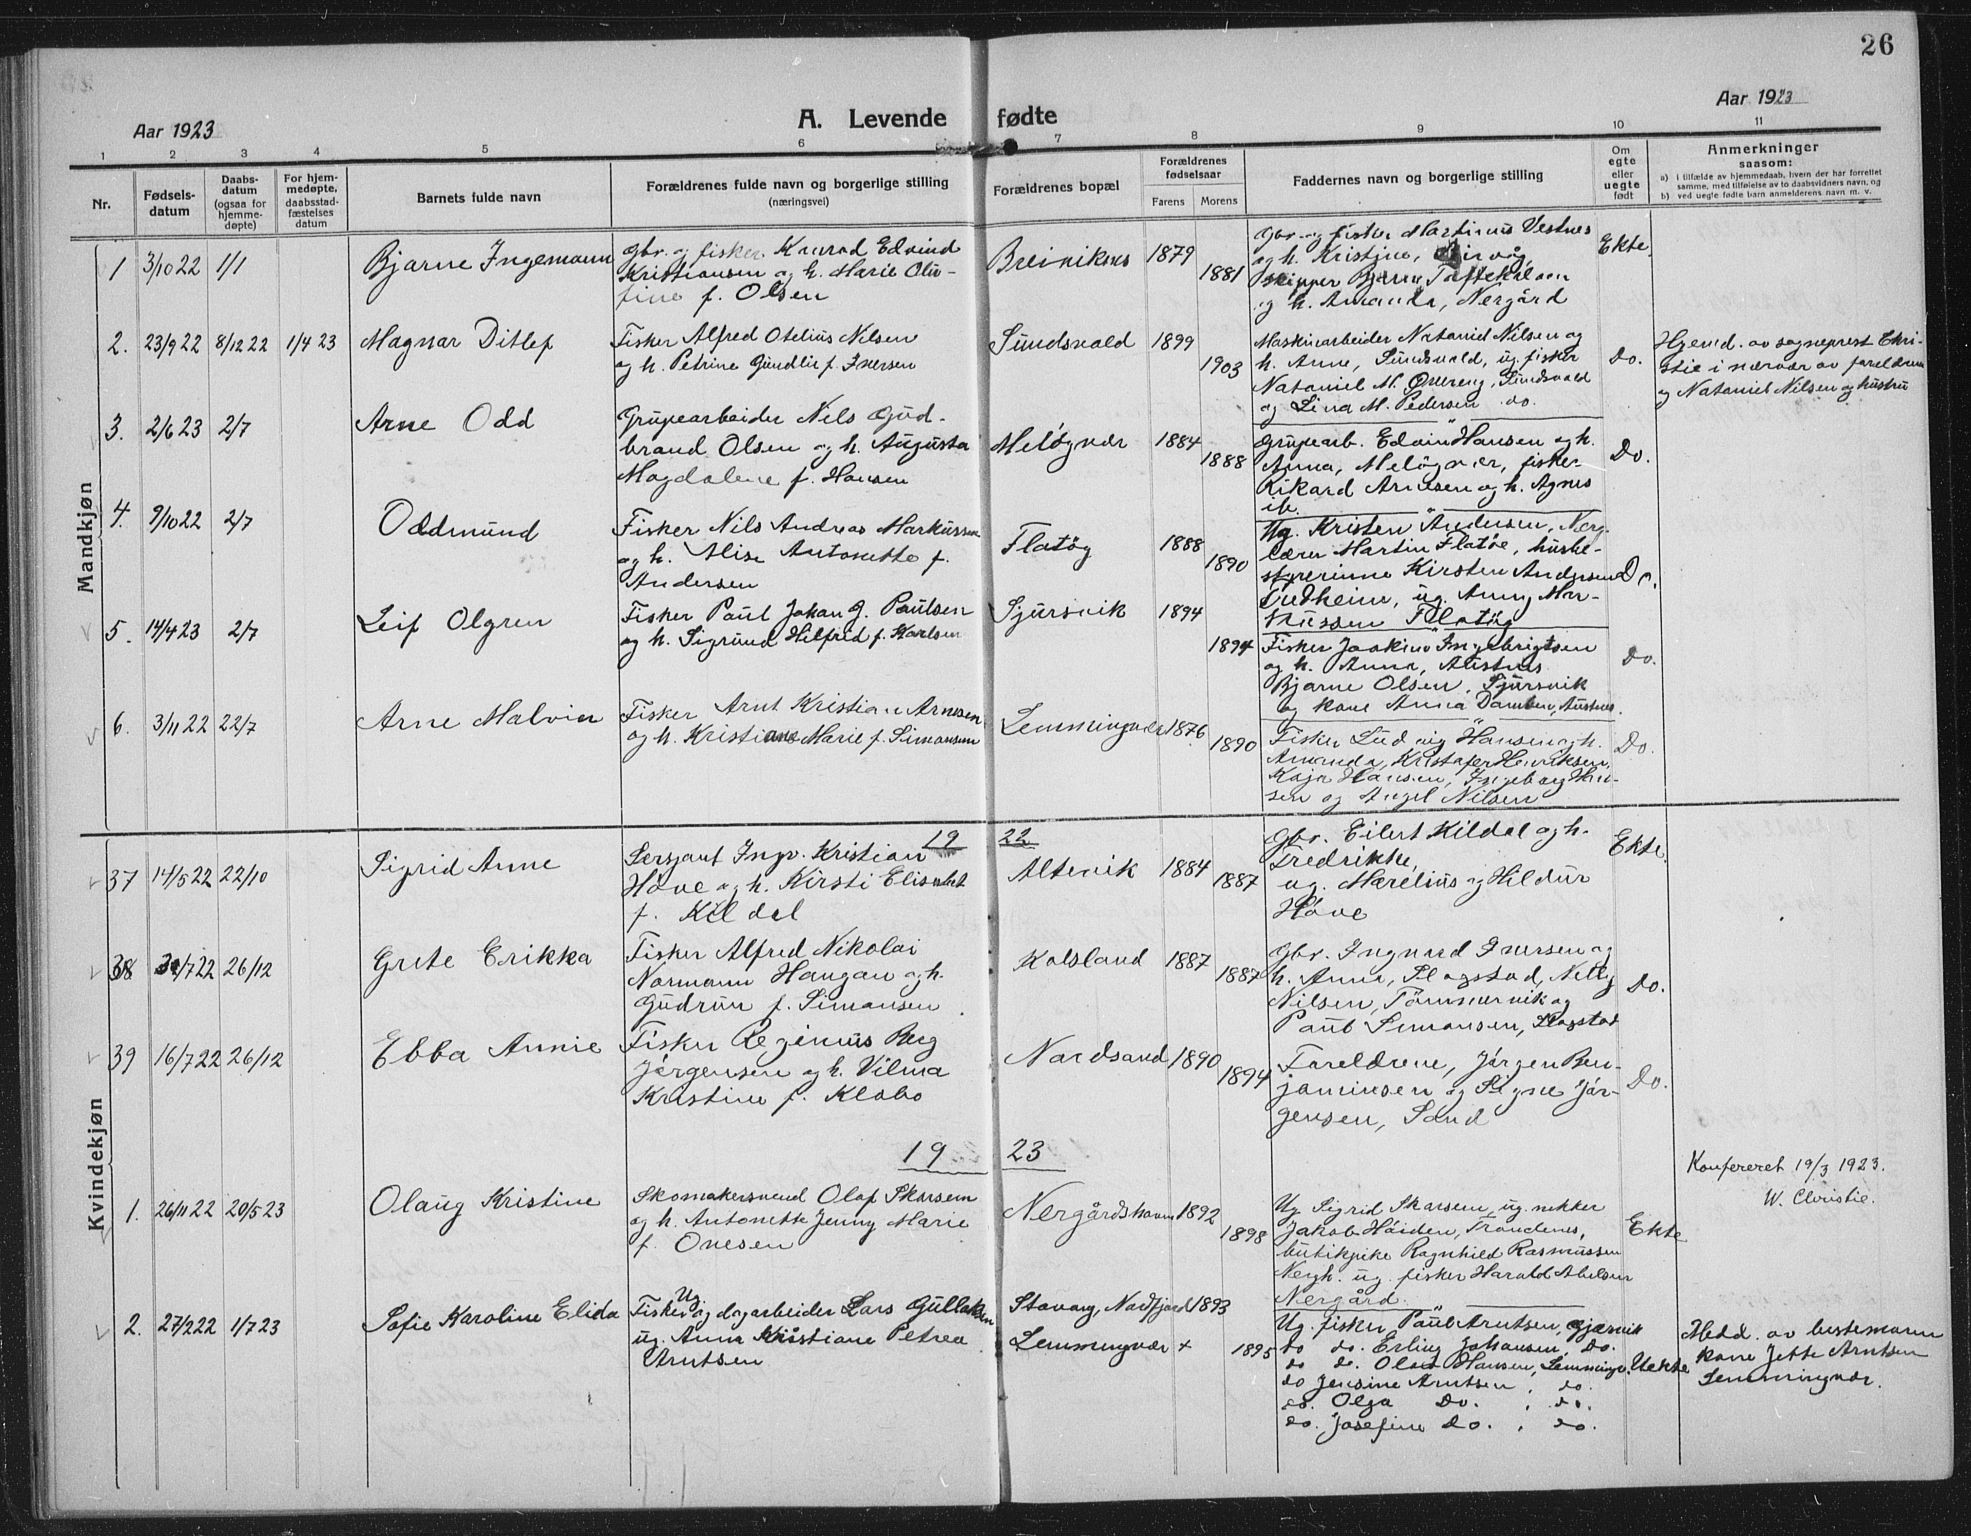 26
Aar 1923
A. Levende fødte
Aar 1923
1 2 3 4 5 6 7 8 9 10 11
Nr.
Fødsels-
datum
Daabs-
datum
(ogsaa for
hjemme-
døpte)
For hjem-
medøpte,
daabsstad-
fæstelses
datum
Barnets fulde navn
Forældrenes fulde navn og borgerlige stilling
(næringsvei)
Forældrenes bopæl
Forældrenes
fødselsaar
Farens Morens
Faddernes navn og borgerlige stilling
Om
egte
eller
uegte
født
Anmerkninger
saasom:
a) i tilfælde av hjemmedaab, hvem der har forrettet
samme, med tilføielse av to daabsvidners navn, og
b) ved uegte fødte barn anmelderens navn m. v.
Mandkjøn
1 3/10 22 1/1
Bjarne Ingemann
Gbr. og fisker Konrad Edvind
Kristiansen og h. Marie Olu-
fine f. Olsen
Breiviknes 1879
1881
Gbr. og fisker Martinus Vestnes
og h. Kristine,
skipper Bjarne
og h. Amanda, Nergård
Ekte
2. 23/9 22 8/12 22 1/4 23
Magnar Ditlef
Fisker Alfred Otelius Nilsen
og h. Petrine Gundlie f. Iversen
Sundsvald 1899
1903
Maskinarbeider Nataniel Nilsen og
h. Anne, Sundsvald, ug. fisker
Nataniel M. Overeng, Sundsvald
og Lina M. Pedersen do.
Do.
Hjemd. av sogneprest Chri-
stie i nærvær av foreldrene
og Nataniel Nilsen og hustru
3. 2/6 23 2/7
Arne Odd
Grupearbeider Nels Gud-
brand Olsen og h. Augusta
Magdalene f. Hansen
Meløyvær 1884
1888
Grupearb. Edvin Hansen og h.
Anna, Meløyvær, fisker
Rikard Arnesen og h. Agnes
ib.
Do.
4. 9/10 22 2/7
Oddmund
Fisker Nils Andreas Markussen
og h. Alise Antonette f.
Andersen
Flatøy 1888
1890
Ug. Kristen Andersen,
lærer Martin Flatøe, husbe-
styrerinne Kirsten Andersen
ug. Anny Mar-
kussen Flatøy
Do.
5. 14/4 23 2/7
Leif Olgren
Fisker Paul Johan J. Paulsen
og h. Sigrund Hilfred f. Karlsen
Sjursvik 1894
1894
Fisker Joakim Ingebrigtsen
og h. Anna, Austnes
Bjarne Olsen, Sjursvik
og kone Anna Danben, Austnes.
Do.
6. 3/11 22 22/7
Arne Malvin
Fisker Arnt Kristian Arnesen
og h. Kristiane Marie f. Simonsen
Lemmingvær 1876
1890
Fisker Ludvig Hansen og h.
Amanda, Kristofer Henriksen,
Kaja Hansen, Ingeborg Han-
sen og Angel Nilsen
Do.
19 22
Kvindekjøn
37 14/5 22 22/10
Sigrid Anne
Sersjant Ingv. Kristian
Hove og h. Kirsti Elisabet
f. Kildal
Altevik 1884
1887
Gbr. Eilert Kildal og h.
Fredrikke,
ug. Marelius og Hildur
Hove
Ekte
38 /7 22 26/12
Grete Erikka
Fisker Alfred Nikolai
Normann Haugan og h.
Gudrun f. Simonsen
Kolsland 1887
1887
Gbr. Ingvard Iversen og
h. Anna, Slagstad, Nelly
Nilsen, Tømmervik og
Paul Simonsen, Slagstad
Do.
39 16/7 22 26/12
Ebba Annie
Fisker Reginius Berg
Jørgensen og h. Vilma
Kristine f. Klabo
Nordsand 1890
1894
Foreldrene, Jørgen Ben-
jaminsen og Signe Jør-
gensen, Sand
Do.
19 23
Konfereret 19/3 1923.
W. Christie.
1. 26/11 22 20/5 23
Olaug Kristine
Skomakersvend Olaf Skarsem
og h. Antonette Jenny Marie
f. Ovesen
Nergårdshavn 1892
1898
Ug. Sigrid Skarsem, ug. snekker
Jakob Høiden, Trondenes,
butikpike Ragnhild Rasmussen
Nergh. ug. fisker Harald Abelsen
Nergård.
Ekte
2. 27/2 22 1/7 23
Sofie Karoline Elida
Ug.
Fisker og dagarbeider Lars Gulleksen
ug. Anna Kristiane Petrea
Arntsen
Stavang, Nordfjord 1893
Lemmingvær + 1895
Ug. fisker Paul Arntsen, Gjærvik
do do. Erling Johansen, Do.
do do. Olaf Hansen, Lemmingv.
do Jensine Arntsen, do.
do. Olga Do. , do.
do. Josefine Do. , do.
Uekte
Medd. av bestemoren
kone Jette Arntsen
Lemmingvær.